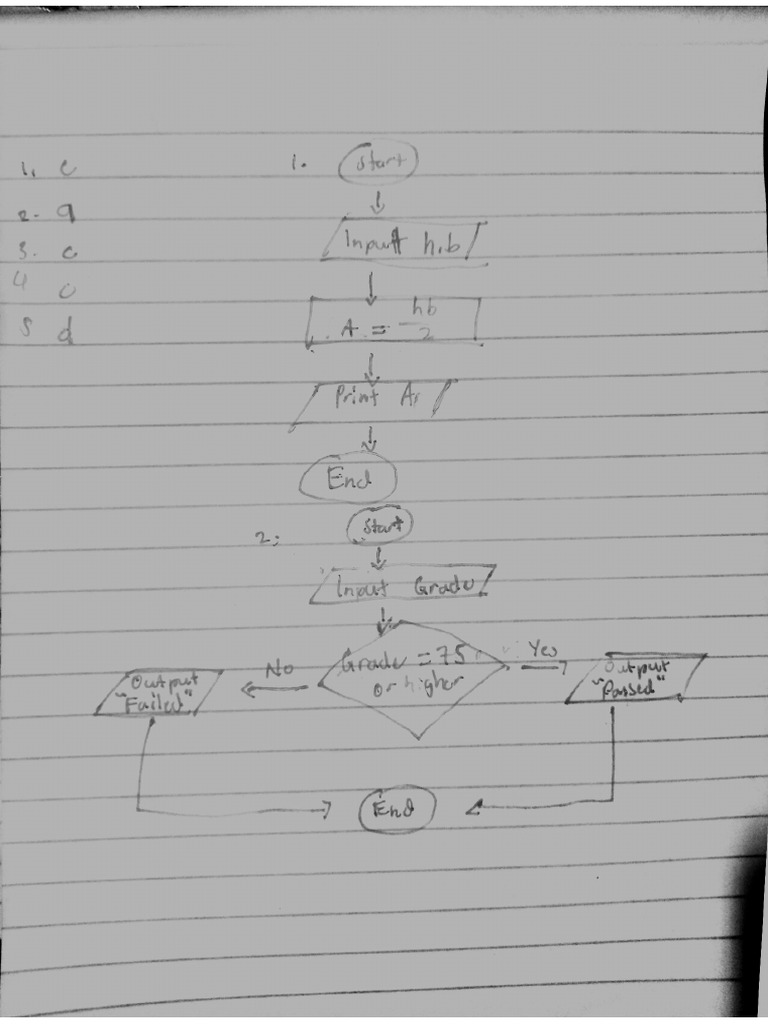 1. c
2. a
3. c
4 c
5 d
1. Start
Input h,b
A = hb/2
Print A
End
2. Start
Input Grade
Grade = 75
or higher
No
Yes
Output
"Failed"
Output
"Passed"
End